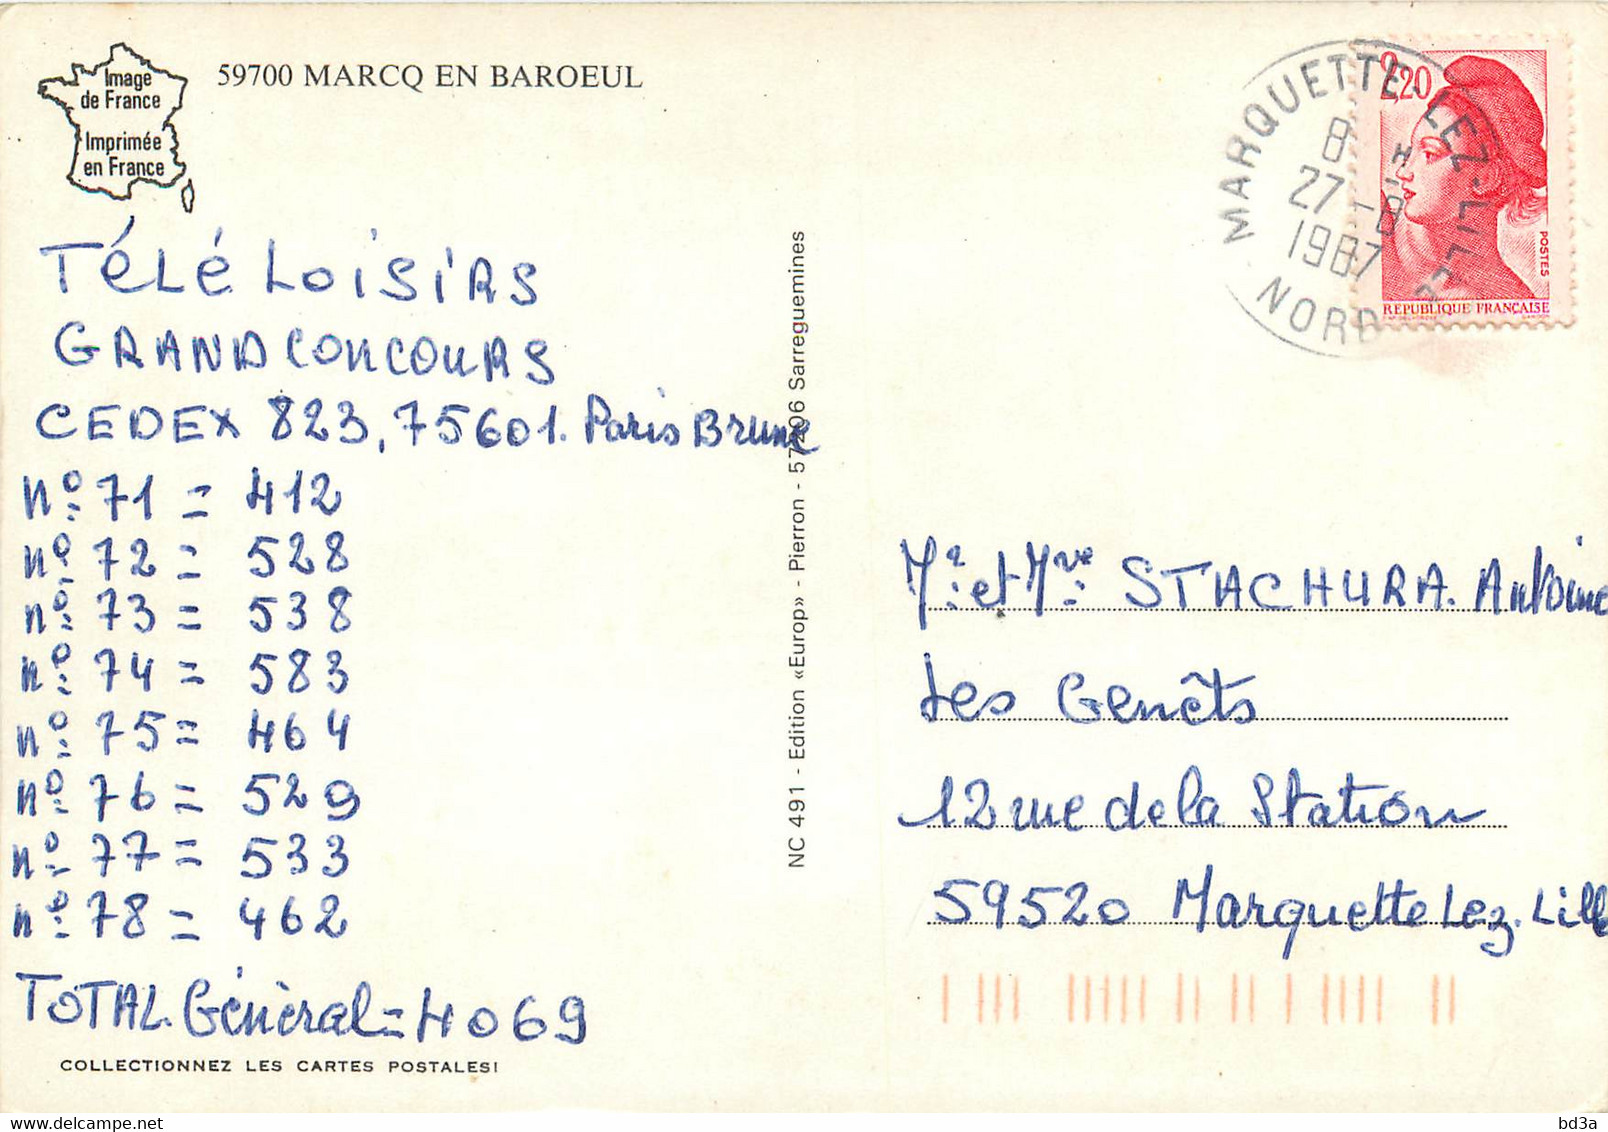 Image
de France
Imprimée
en France
59700 MARCQ EN BAROEUL
MARQUETTE-LEZ-LILLE
8 H
27 -8
1987
NORD
2,20
POSTES
REPUBLIQUE FRANÇAISE
TéLé LoisiRS
GRAND CONCOURS
CEDEX 823, 75601. Paris Brune
n° 71 = 412
n° 72 = 528
n° 73 = 538
n° 74 = 583
n° 75 = 464
n° 76 = 529
n° 77 = 533
n° 78 = 462
TOTAL. Général = 4069
COLLECTIONNEZ LES CARTES POSTALES!
NC 491 - Edition «Europ» - Pierron - 57206 Sarreguemines
Mr. et Mve STACHURA. Antoine
Les Genêts
12 rue de la Station
59520 Marquette Lez. Lille
bd3a